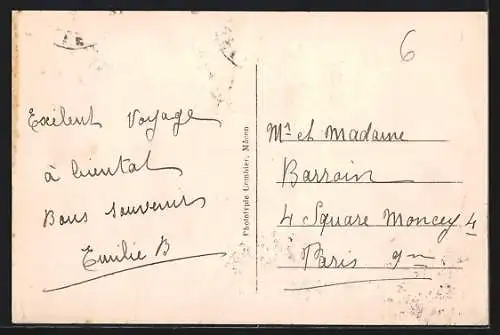 6
Exilent Voyage
à bientot
Bons souvenirs
Emilie B
Phototypie Combier, Mâcon
Mr et Madame
Barrain
4 Square Moncey 4
Paris 9m